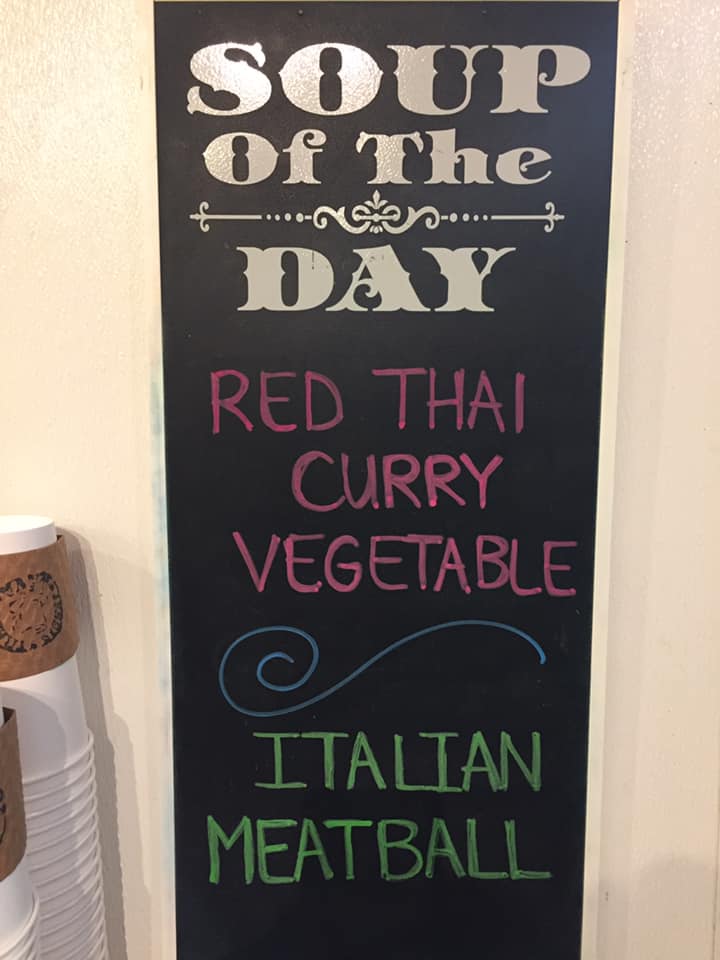 SOUP
Of The
DAY
RED THAI
CURRY
VEGETABLE
ITALIAN
MEATBALL